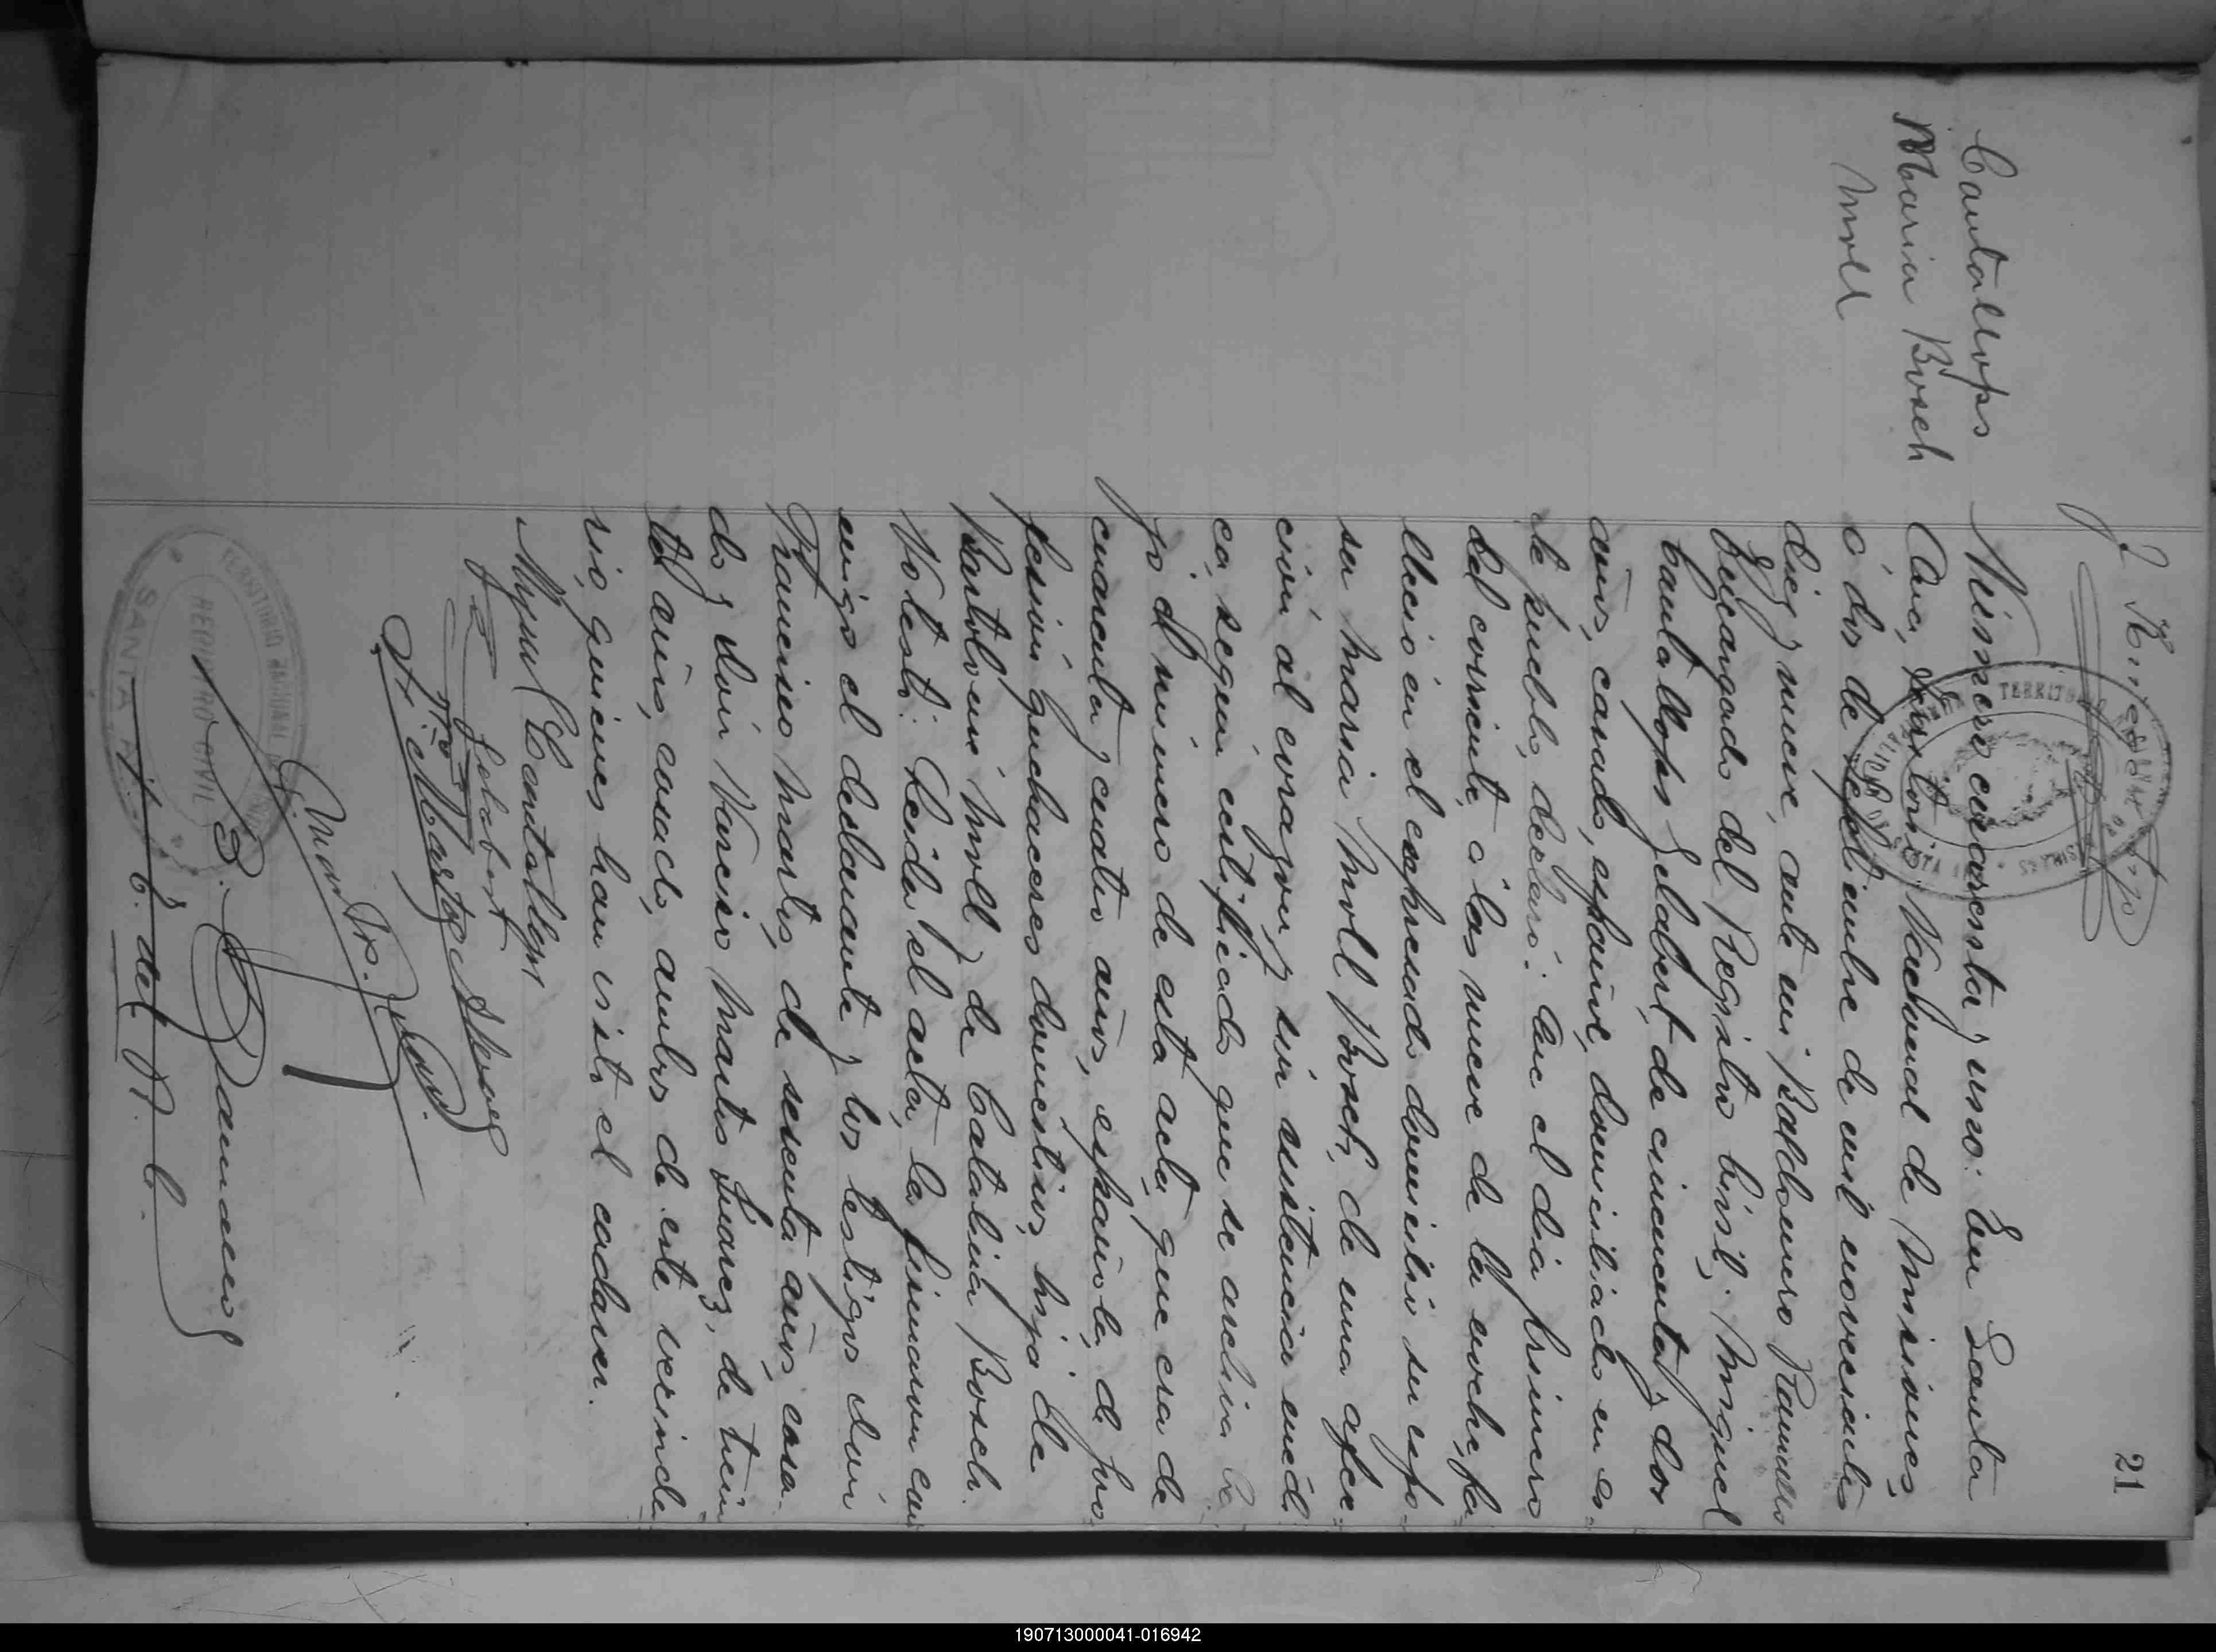 21
J. Ri
Cantallops
Maria Bosch
Moll
Número cuarenta y uno: En Santa
Ana, Territorio Nacional de Misiones,
á dos de Septiembre de mil novecientos
diez y nueve, ante mi Baldomero Ramuneo
Encargado del Registro Civil; Miguel
Cantallops Gelabert, de cincuenta y dos
años, casado, español, domiciliado en es-
te pueblo, declaró: Que el dia primero
del corriente, á las nueve de la noche, fa-
lleció en el expresado domicilio su espo-
sa Maria Moll Bosch, de una afec-
ción al corazon y sin asistencia médi-
ca, segun certificado que se archiva ba-
jo el número de esta acta, que era de
cuarenta y cuatro años, española, de pro-
fesión quehaceres domésticos, hija de
Bartolomé Moll y de Catalina Bosch.
No testó. Leida el acta, la firmaron con-
migo el declarante y los testigos don
Francisco Martos, de sesenta años, casa-
do y don Narciso Martos Suarez, de trein-
ta años, casado, ambos de este vecinda-
rio, quienes han visto el cadaver.
Miguel Cantallops
Gelabert
Fco Martos Alonso
B. Ramuneo
J. E. del R. C.
TERRITORIO NACIONAL DE MISIONES
REGISTRO CIVIL
SANTA ANA
190713000041-016942